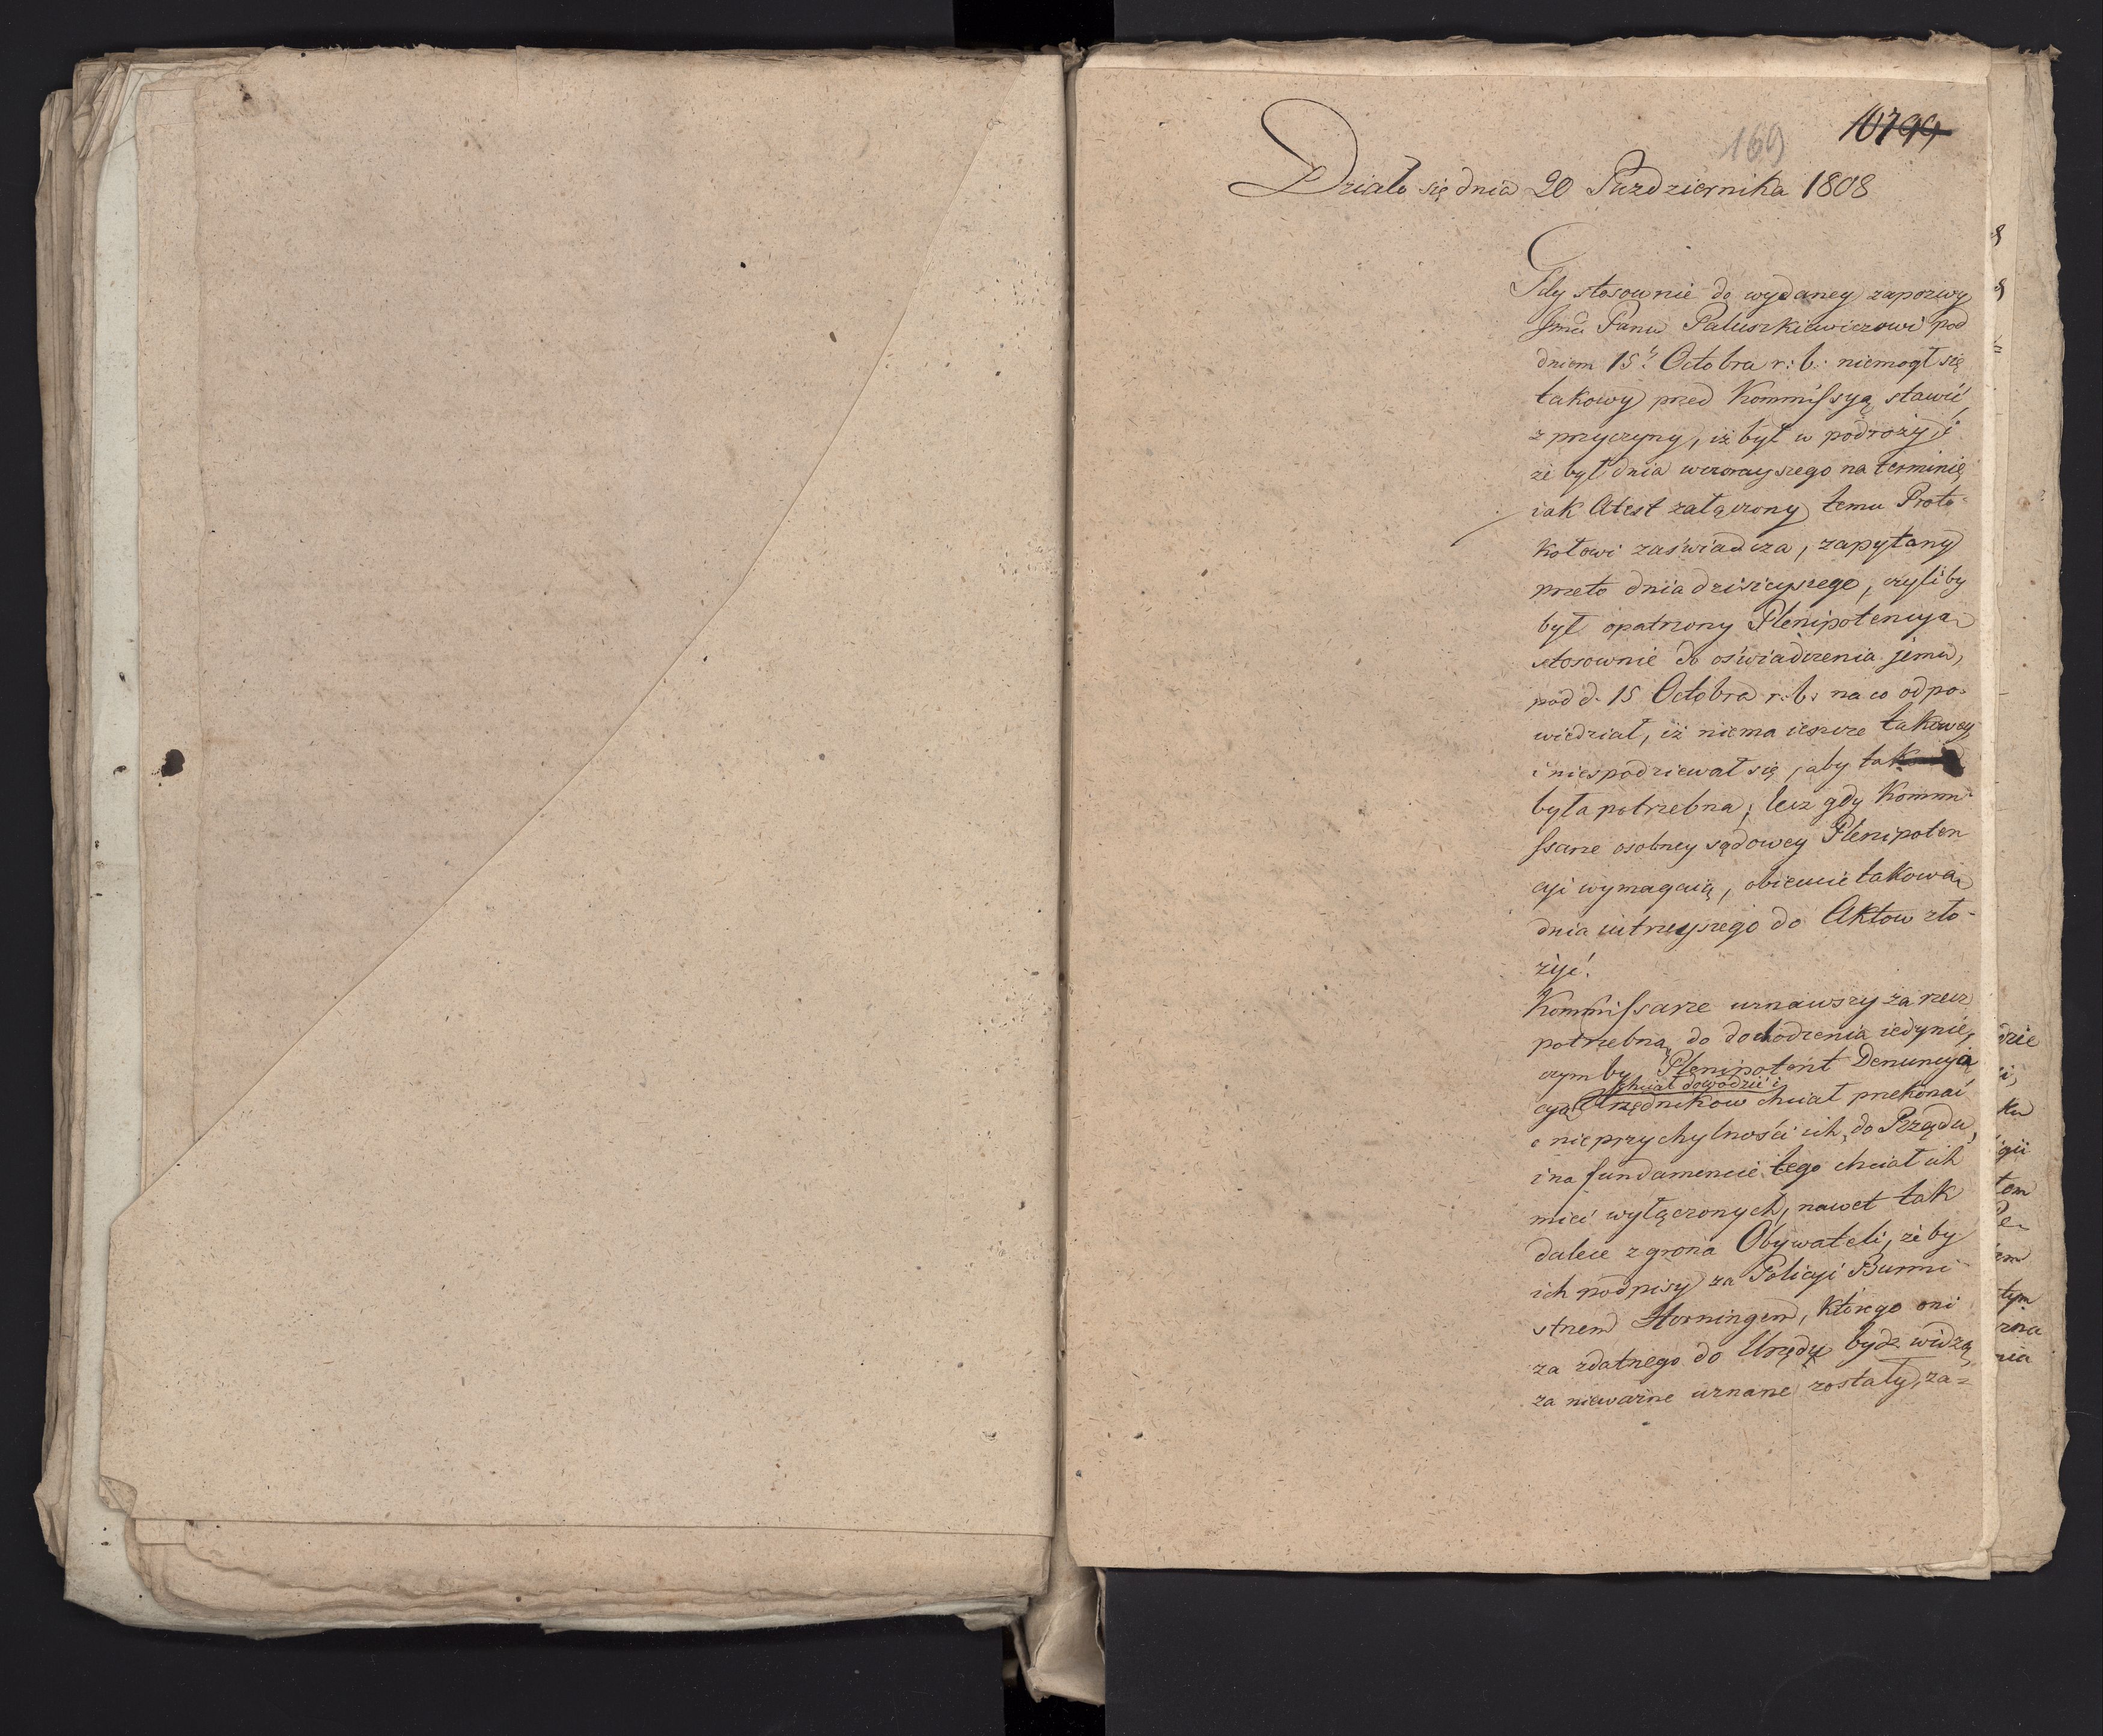 169
Działo się dnia 20 Pazdziernika 1808
Gdy stosownie do wydaney zapozwy
Jmci Panu Paluszkiewiczowi pod
dniem 15. Octobra r: b: niemogł się
takowy przed Kommissyą stawić
z przyczyny, iż był w podroży i
że był dnia wczorayszego na terminie
iak Atest załączony temu Proto-
kołowi zaświadcza, zapytany
przeto dnia dzisieyszego, czyliby
był opatrzony Plenipotencyą
stosownie do oświadczenia jemu,
pod d. 15 Octobra r: b: na co odpo-
wiedział, iż niema ieszcze takowey
i niespodziewał się, aby tak
była potrzebna, lecz gdy Kommi-
ssarze osobney sądowey Plenipoten
cyi wymagaią, obiecuie takową
dnia iutrzeyszego do Aktow zło-
żyć.
Kommissarze uznawszy za rzecz
potrzebną do dochodzenia iedynie,
czym by Plenipotent Denuncya
chciał dowodzić i
cyą Urzędnikow chciał przekonać
o nieprzychylności ich do Rządu,
i na fundamencie tego chciał ich
mieć wyłączonych, nawet tak
dalece z grona Obywateli, że by
ich podpisy za Policyi Burmi-
strzem Horningem, ktorego oni
za zdatnego do Urzędu bydz widzą,
za nieważne uznane zostały, za=
drie
ku
gii
tem
tym
nia